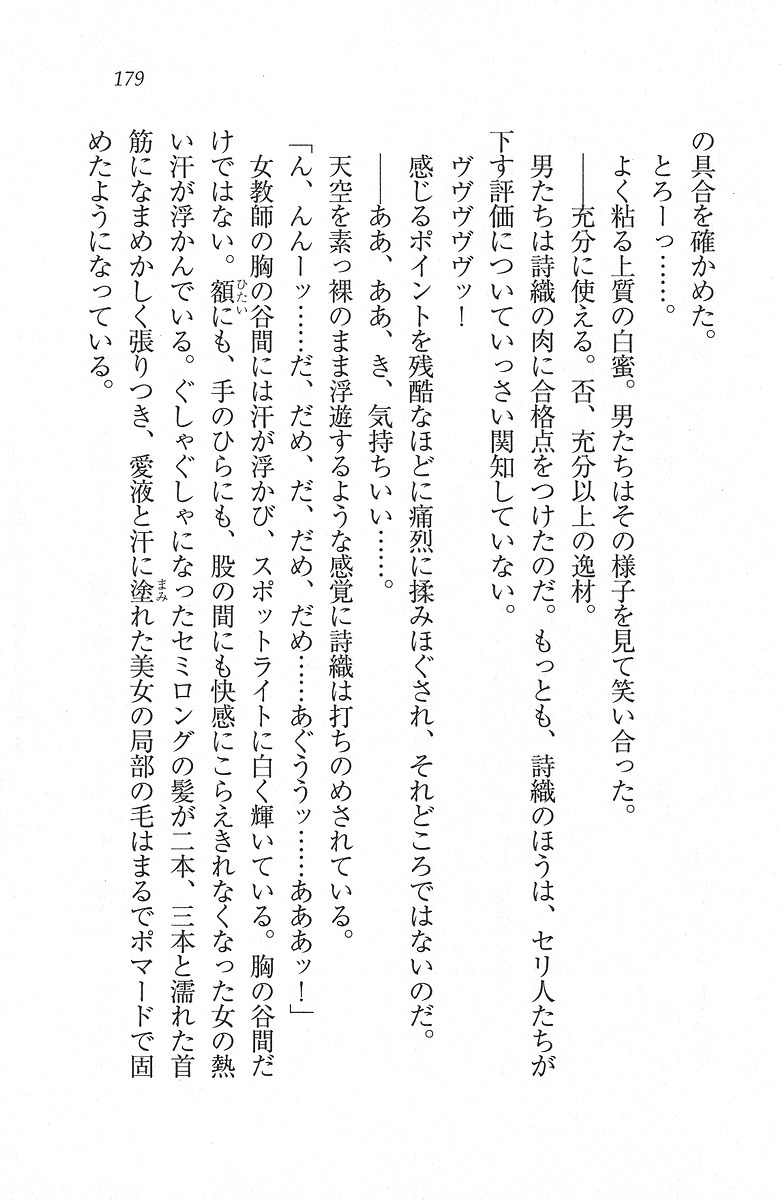 179
の具合を確かめた。
とろーっ……。
よく粘る上質の白蜜。男たちはその様子を見て笑い合った。
――充分に使える。否、充分以上の逸材。
男たちは詩織の肉に合格点をつけたのだ。もっとも、詩織のほうは、セリ人たちが
下す評価についていっさい関知していない。
ヴヴヴヴヴッ！
感じるポイントを残酷なほどに痛烈に揉みほぐされ、それどころではないのだ。
――ああ、ああ、き、気持ちいい……。
天空を素っ裸のまま浮遊するような感覚に詩織は打ちのめされている。
「ん、んんーッ……だ、だめ、だ、だめ、だめ……あぐううッ……あああッ！」
女教師の胸の谷間には汗が浮かび、スポットライトに白く輝いている。胸の谷間だ
けではない。額にも、手のひらにも、股の間にも快感にこらえきれなくなった女の熱
ひたい
い汗が浮かんでいる。ぐしゃぐしゃになったセミロングの髪が二本、三本と濡れた首
筋になまめかしく張りつき、愛液と汗に塗れた美女の局部の毛はまるでポマードで固
まみ
めたようになっている。